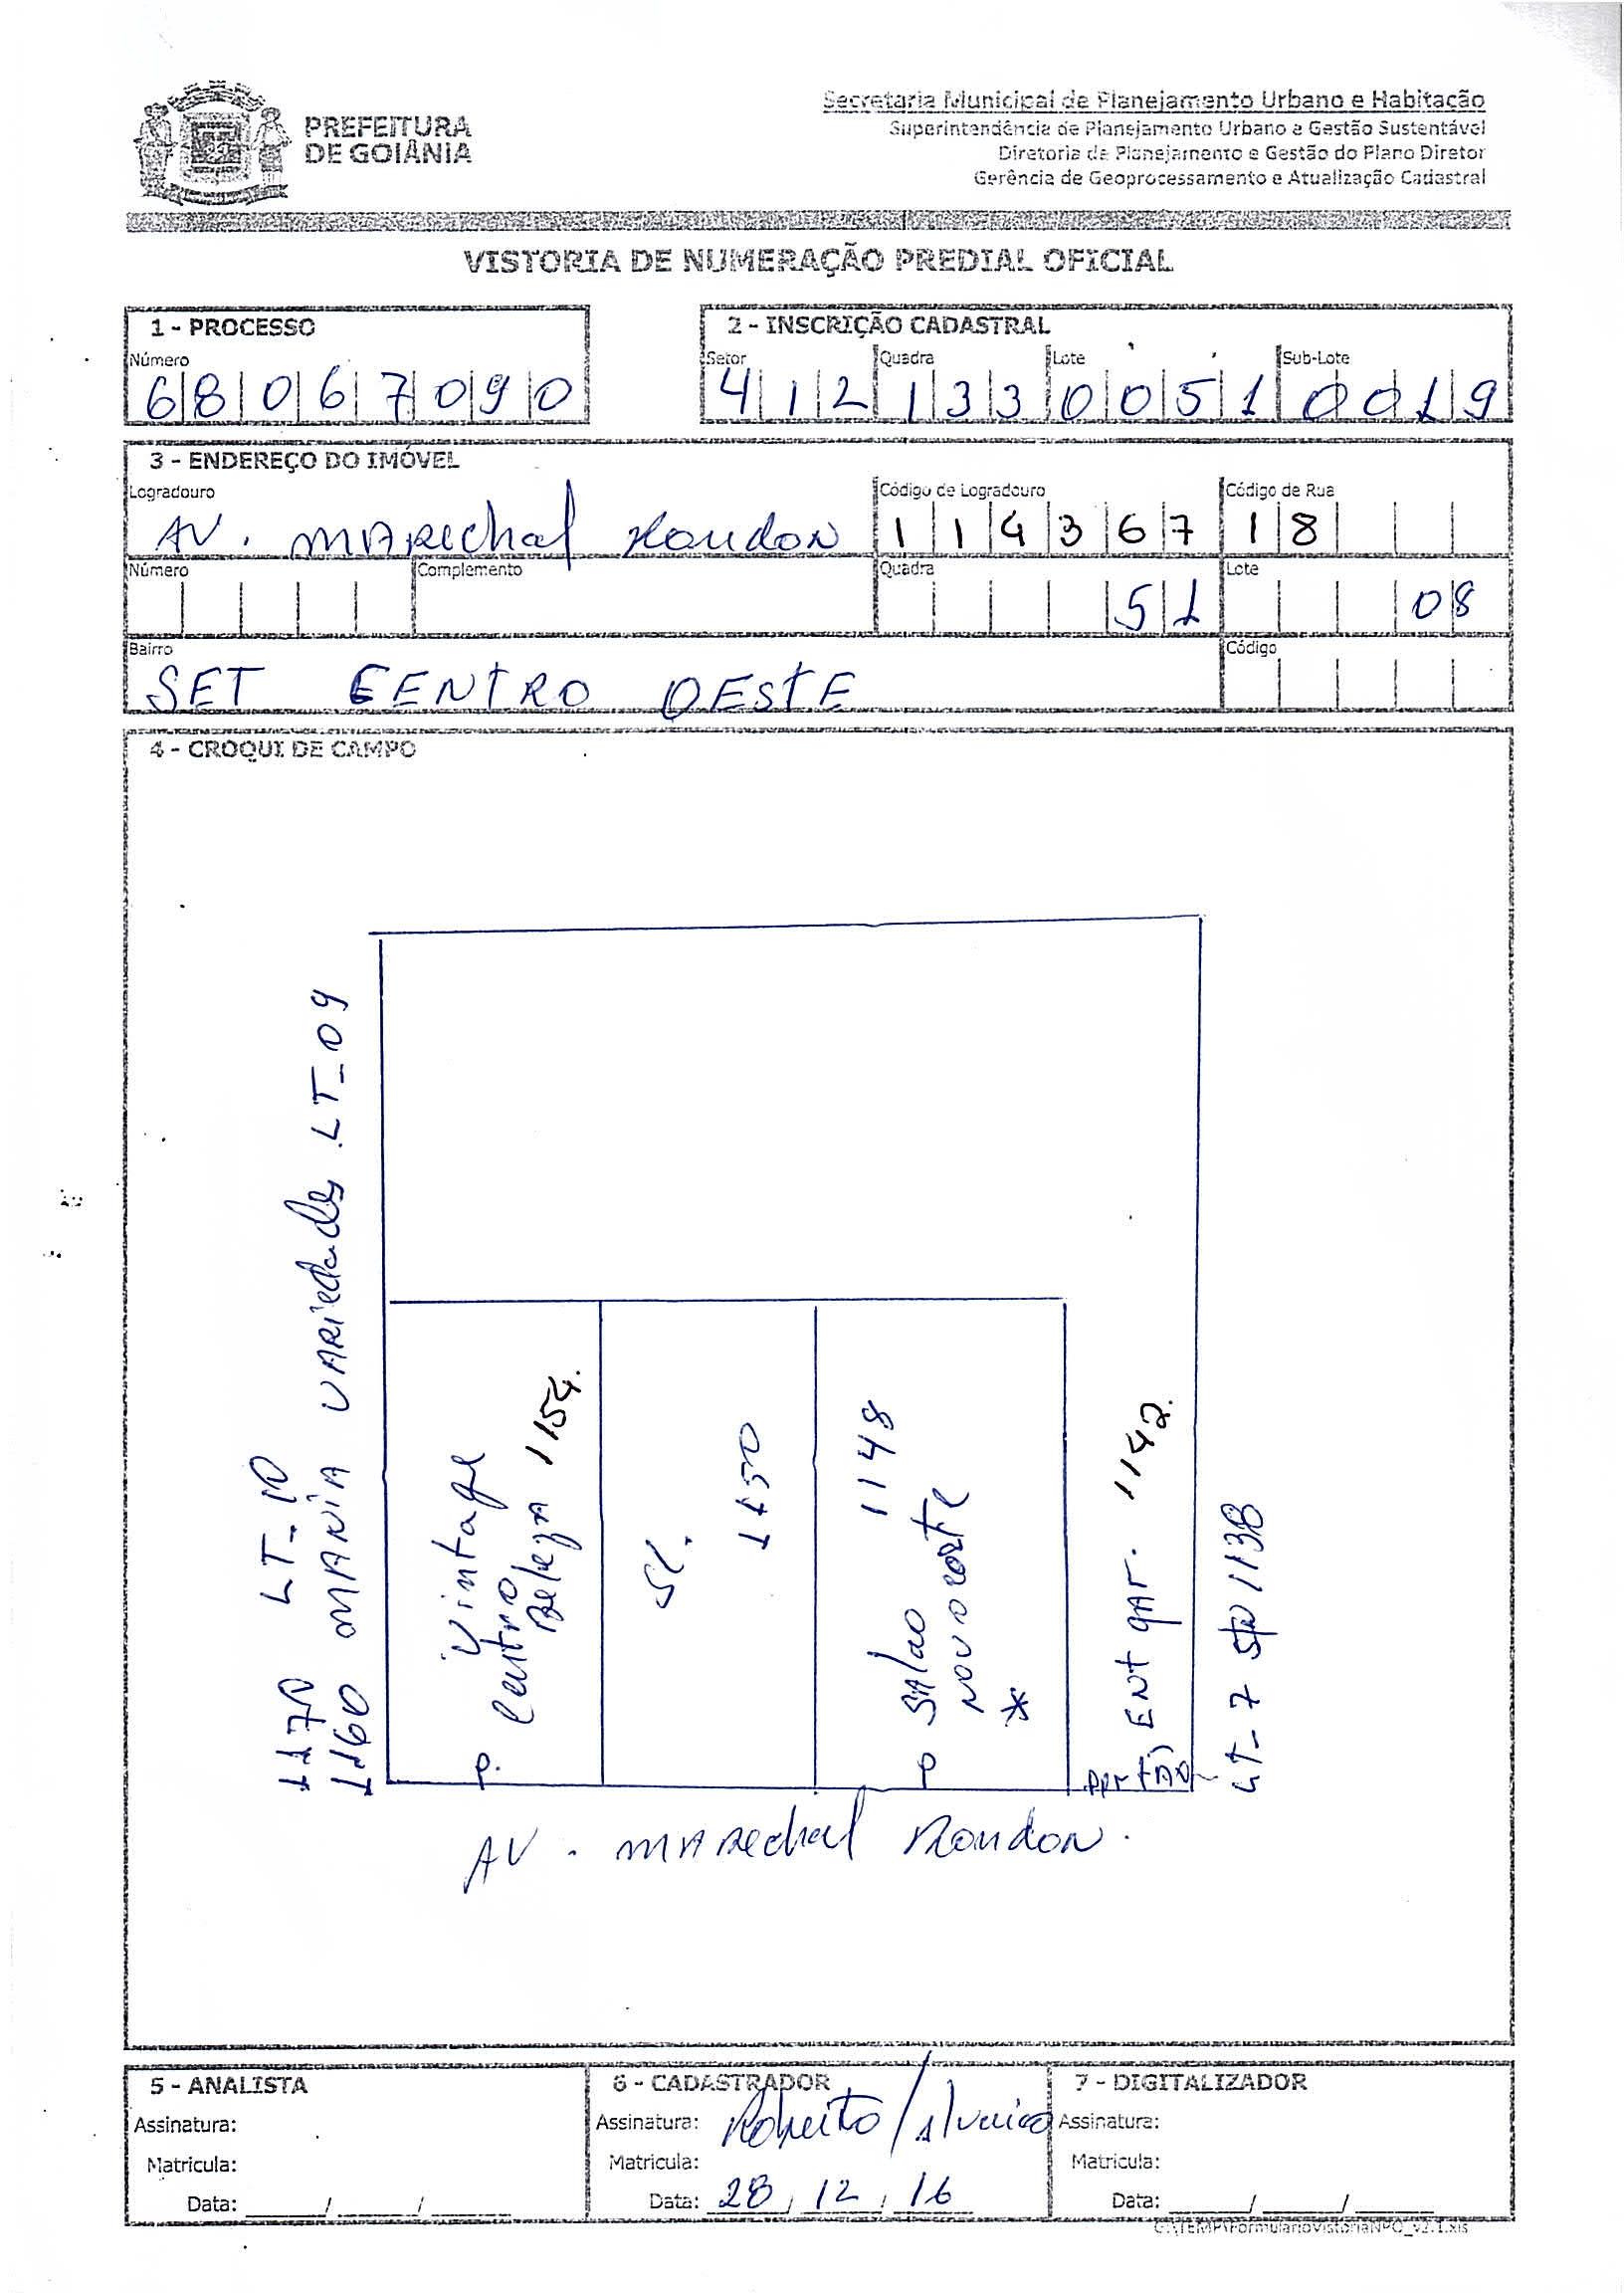 PREFEITURA
DE GOIÂNIA
Secretaria Municipal de Planejamento Urbano e Habitação
Superintendência de Planejamento Urbano e Gestão Sustentável
Diretoria de Planejamento e Gestão do Plano Diretor
Gerência de Geoprocessamento e Atualização Cadastral
VISTORIA DE NUMERAÇÃO PREDIAL OFICIAL
1 - PROCESSO
Número
68067090
2 - INSCRIÇÃO CADASTRAL
Setor Quadra Lote Sub-Lote
412 133 0051 0019
3 - ENDEREÇO DO IMÓVEL
Logradouro Código de Logradouro Código de Rua
AV. MARechal Rondon 114367 18
Número Complemento Quadra Lote
51 08
Bairro Código
SET CENTRO OESTE
4 - CROQUI DE CAMPO
1170 LT-10
1160 MANIA VARIEdades LT-09
P. Vintage
Centro
Beleza 1154.
SL.
1150
P Salao 1148
NOVO CORTE
*
portão ENT gar. 1142.
LT-7 1138
AV. MARechal Rondon.
5 - ANALISTA
Assinatura:
Matricula:
Data: ____/____/____
6 - CADASTRADOR
Assinatura: Roberto /
Matricula:
Data: 28 / 12 / 16
7 - DIGITALIZADOR
Assinatura:
Matricula:
Data: ____/____/____
C:\TEMP\FormularioVistoriaNPO_v2.1.xls